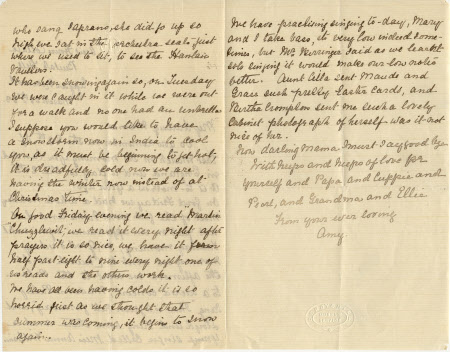 who sang Soprano, she did go up so
high we sat in the orchestra seats just
where we used to sit, to see the Hanlon
It has been snowing again so, on Tuesday
we were caught in it while we were out
for a walk and no one had an umbrella
I suppose you would like to have
a snowstorm now in India to cool
you, as it must be beginning to get hot,
it is dreadfully cold now we are
having the winter now instead of at
Christmas time.
On Good Friday evening we read Martin
Chuzzlewit, we read it every night after
prayers it is so nice, we have it from
half past eight to nine every night one of
us reads and the others work.
We have all been having colds it is so
horrid just as we thought that
summer was coming, it begins to snow
again.
We have practising singing to-day, Mary
and I take bass, it is very low indeed some-
times, but Mr said as we learnt
solo singing it would make our low notes
better. Aunt Celia sent Maude and
Grace such pretty Easter cards, and
Bertha Crompton sent me such a lovely
Cabinet photograph of herself was it not
nice of her.
Now darling Mama I must say good bye
With heaps and heaps of love for
yourself and Papa and and
Pearl, and Grandma and Ellie
From your ever loving
Amy.